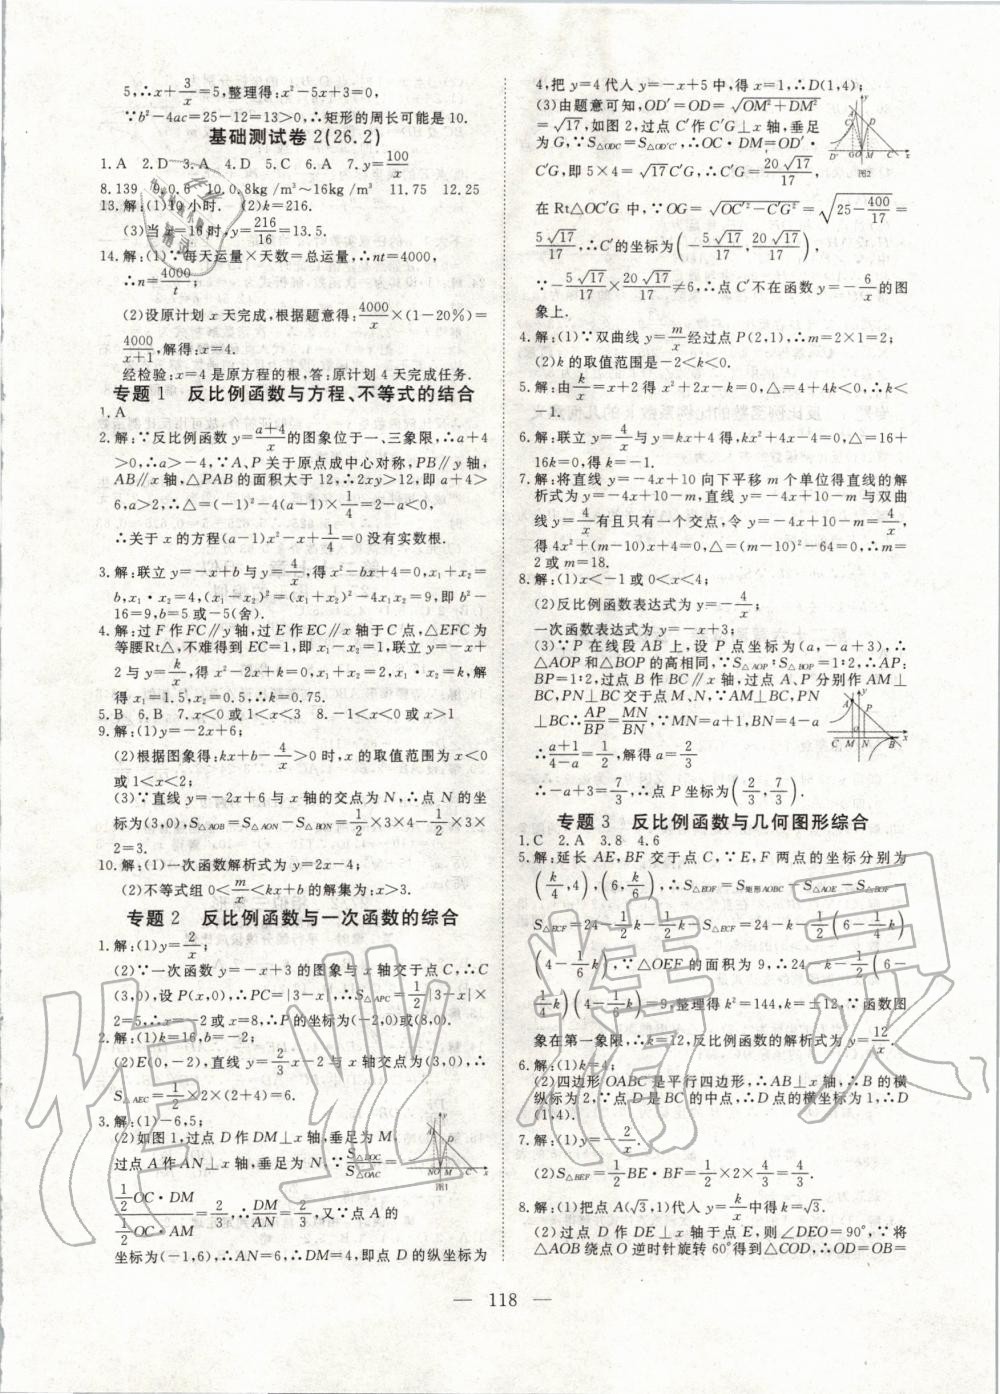 5,∴x+3/x=5,整理得:x²-5x+3=0,
∵b²-4ac=25-12=13>0,∴矩形的周长可能是10.
基础测试卷2(26.2)
1.A 2.D 3.A 4.D 5.C 6.A 7.y=100/x
8.139 9.0.6 10.0.8kg/m³~16kg/m³ 11.75 12.25
13.解:(1)10小时. (2)k=216.
(3)当x=16时,y=216/16=13.5.
14.解:(1)∵每天运量×天数=总运量,∴nt=4000,
∴n=4000/t;
(2)设原计划x天完成,根据题意得:4000/x×(1-20%)=
4000/(x+1),解得:x=4.
经检验:x=4是原方程的根,答:原计划4天完成任务.
专题1 反比例函数与方程、不等式的结合
1.A
2.解:∵反比例函数y=(a+4)/x的图象位于一、三象限,∴a+4
>0,∴a>-4,∵A、P关于原点成中心对称,PB∥y轴,
AB∥x轴,△PAB的面积大于12,∴2xy>12,即a+4>
6,a>2,∴△=(-1)²-4(a-1)×1/4=2-a<0,
∴关于x的方程(a-1)x²-x+1/4=0没有实数根.
3.解:联立y=-x+b与y=4/x,得x²-bx+4=0,x₁+x₂=
b,x₁·x₂=4,(x₁-x₂)²=(x₁+x₂)²-4x₁x₂=9,即b²-
16=9,b=5或-5(舍).
4.解:过F作FC∥y轴,过E作EC∥x轴于C点,△EFC为
等腰Rt△,不难得到EC=1,即x₁-x₂=1,联立y=-x+
2与y=k/x,得x²-2x+k=0,x₁+x₂=2,x₁·x₂=k,解
得x₁=1.5,x₂=0.5,∴k=0.75.
5.B 6.B 7.x<0或1<x<3 8.-1<x<0或x>1
9.解:(1)y=-2x+6;
(2)根据图象得:kx+b-4/x>0时,x的取值范围为x<0
或1<x<2;
(3)∵直线y=-2x+6与x轴的交点为N,∴点N的坐
标为(3,0),S△AOB=S△AON-S△BON=1/2×3×4-1/2×3×
2=3.
10.解:(1)一次函数解析式为y=2x-4;
(2)不等式组0<m/x<kx+b的解集为:x>3.
专题2 反比例函数与一次函数的综合
1.解:(1)y=2/x;
(2)∵一次函数y=-x+3的图象与x轴交于点C,∴C
(3,0),设P(x,0),∴PC=|3-x|,∴S△APC=1/2|3-x|×
2=5,∴x=-2或x=8,∴P的坐标为(-2,0)或(8,0).
2.解:(1)k=16,b=-2;
(2)E(0,-2),直线y=2/3x-2与x轴交点为(3,0),∴
S△AEC=1/2×2×(2+4)=6.
3.解:(1)-6,5;
(2)如图1,过点D作DM⊥x轴,垂足为M,
过点A作AN⊥x轴,垂足为N,∵S△DOC/S△OAC=
(1/2OC·DM)/(1/2OC·AM)=2/3,∴DM/AN=2/3,又∵点A的
坐标为(-1,6),∴AN=6,∴DM=4,即点D的纵坐标为
图1
4,把y=4代入y=-x+5中,得x=1,∴D(1,4);
(3)由题意可知,OD′=OD=√(OM²+DM²)
=√17,如图2,过点C′作C′G⊥x轴,垂足
为G,∵S△ODC=S△OD′C′,∴OC·DM=OD′·
C′G,即5×4=√17C′G,∴C′G=20√17/17,
图2
在Rt△OC′G中,∵OG=√(OC′²-C′G²)=√(25-400/17)=
5√17/17,∴C′的坐标为(-5√17/17,20√17/17),
∵-5√17/17×20√17/17≠6,∴点C′不在函数y=-6/x的图
象上.
4.解:(1)∵双曲线y=m/x经过点P(2,1),∴m=2×1=2;
(2)k的取值范围是-2<k<0.
5.解:由k/x=x+2得x²+2x-k=0,∴△=4+4k<0,∴k<
-1.
6.解:联立y=4/x与y=kx+4得,kx²+4x-4=0,△=16+
16k=0,得k=-1.
7.解:将直线y=-4x+10向下平移m个单位得直线的解
析式为y=-4x+10-m,直线y=-4x+10-m与双曲
线y=4/x有且只有一个交点,令y=-4x+10-m=4/x,
得4x²+(m-10)x+4=0,△=(m-10)²-64=0,∴m=
2或m=18.
8.解:(1)x<-1或0<x<4;
(2)反比例函数表达式为y=-4/x;
一次函数表达式为y=-x+3;
(3)∵P在线段AB上,设P点坐标为(a,-a+3),∴
△AOP和△BOP的高相同,∵S△AOP∶S△BOP=1∶2,∴AP∶
BP=1∶2,过点B作BC∥x轴,过点A、P分别作AM⊥
BC,PN⊥BC交于点M、N,∵AM⊥BC,PN
⊥BC∴AP/BP=MN/BN,∵MN=a+1,BN=4-a
∴(a+1)/(4-a)=1/2,解得a=2/3
∴-a+3=7/3,∴点P坐标为(2/3,7/3).
专题3 反比例函数与几何图形综合
1.C 2.A 3.8 4.6
5.解:延长AE,BF交于点C,∵E,F两点的坐标分别为
(k/4,4),(6,k/6),∴S△EOF=S矩形AOBC-S△AOE-S△BOF
S△ECF=24-1/2k-1/2k-S△ECF=24-k-1/2(6-1/4k)
(4-1/6k),∵△OEF的面积为9,∴24-k-1/2(6-
1/4k)(4-1/6k)=9,整理得k²=144,k=±12,∵函数图
象在第一象限,∴k=12,反比例函数的解析式为y=12/x.
6.解:(1)k=4;
(2)四边形OABC是平行四边形,∴AB⊥x轴,∴B的横
纵标为2,∵点D是BC的中点,∴点D的横坐标为1,∴D
(1,4).
7.解:(1)y=-2/x.
(2)S△BEF=1/2BE·BF=1/2×2×4/3=4/3
8.解:(1)把点A(√3,1)代入y=k/x中得k=√3.
(2)过点D作DE⊥x轴于点E,则∠DEO=90°,∵将
△AOB绕点O逆时针旋转60°得到△COD,∴OD=OB=
— 118 —
作业精灵